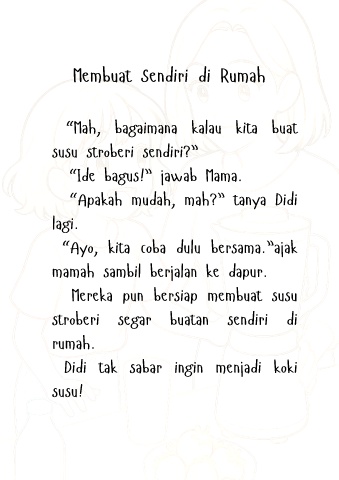 Membuat Sendiri di Rumah
“Mah, bagaimana kalau kita buat
susu stroberi sendiri?”
“Ide bagus!” jawab Mama.
“Apakah mudah, mah?” tanya Didi
lagi.
“Ayo, kita coba dulu bersama.”ajak
mamah sambil berjalan ke dapur.
Mereka pun bersiap membuat susu
stroberi segar buatan sendiri di
rumah.
Didi tak sabar ingin menjadi koki
susu!